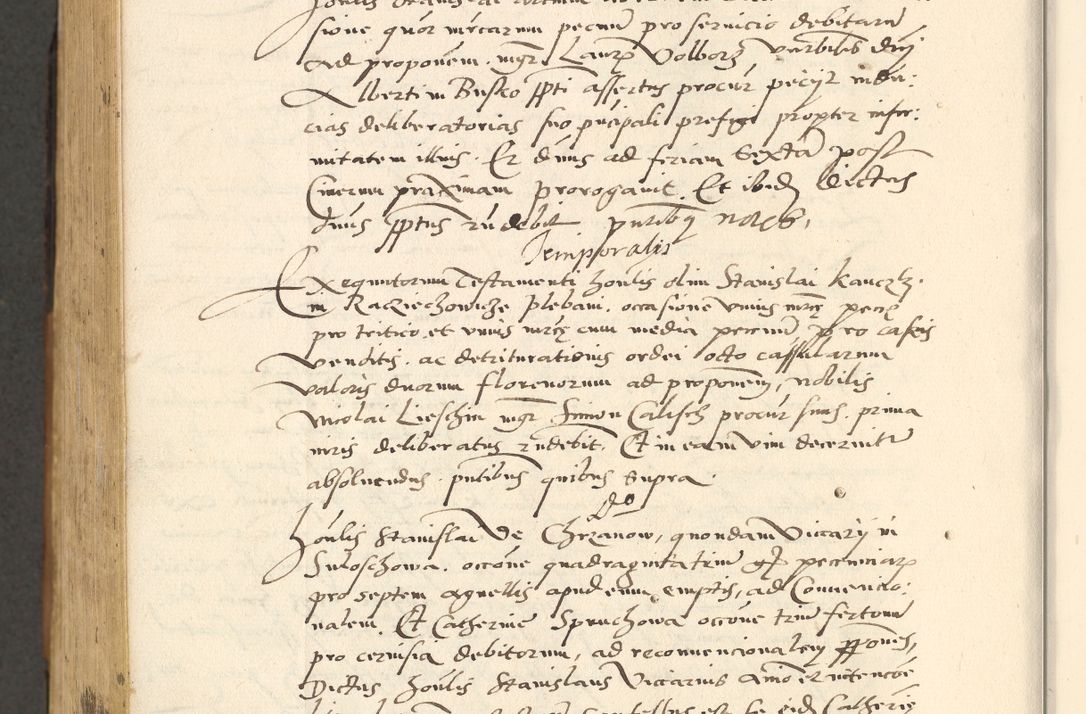 sione quor mrcarum pecun pro servicio debitarum
Ad proponem. mgr Laur Volborz verbibis dnj
Alberti in Busco sspti assertus procur pecijt indu:
cias deliberatorias suo pncipali prefigi propter infir:
mitatem illius. Et dnus ad feriam Sextam post
Cinerum proximam prorogavit. Et ibidem dictus
dnus sptus rndebit pntibus notis.
Temporalis
Exequutorum Testamenti honlis olim Stanislai Kanczk.
in Racziechowicze plebani. occasione unius mrce pecu
pro tritico, et unius mrce cum media pecun pro caseis
venditis. ac detriturationis ordei octo cassularum
valoris duorum florenorum ad proponem, nobilis
Nicolai Lieschin mgr Simon Calisch procur suus. prima
iuris deliberatus rndebit. Et in eam vim decernitur
absolvendus. pntibus quibus supra.
Honlis Stanislai de Chrzanow, quondam Vicarij in
Suloschowa. occone quadraginta trium gr pecuniar
pro septem agnellis apud eum emptis, ad Convencio:
nalem. Et Catherine Spruchowa occone trium fertonum
pro cervisia debitorum, ad reconvencionalem ppones,
Dictus honlis Stanislaus Vicarius animo et intencone